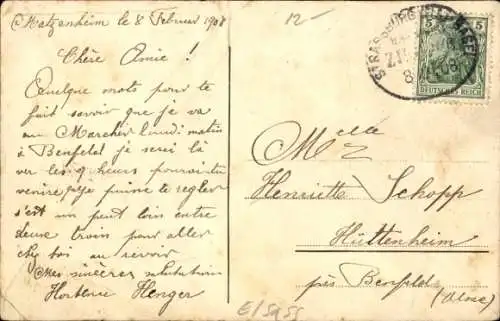 Matzenheim le 8 Februar 1908
Chère Amie!
Quelque mots pour te
fait savoir que je va
au Marcher lundi matin
à Benfeld je serai là
ver les 9 heures pourai tu
venire que je puisse te regler
s'est un peut loin entre
deux troin pour aller
chez toi au revoir
Mes sincères salutation
Hortense Henger
12-
STRASSBURG BASEL
ZUG
8
08
5 5
DEUTSCHES REICH
Melle
Henriette Schopp
Hüttenheim
près Benfeld
(Alsace)